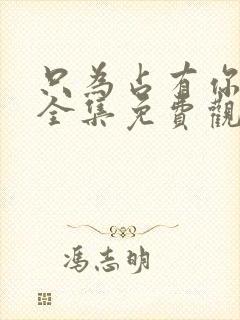 只為占有你
全集免費觀
馮志明